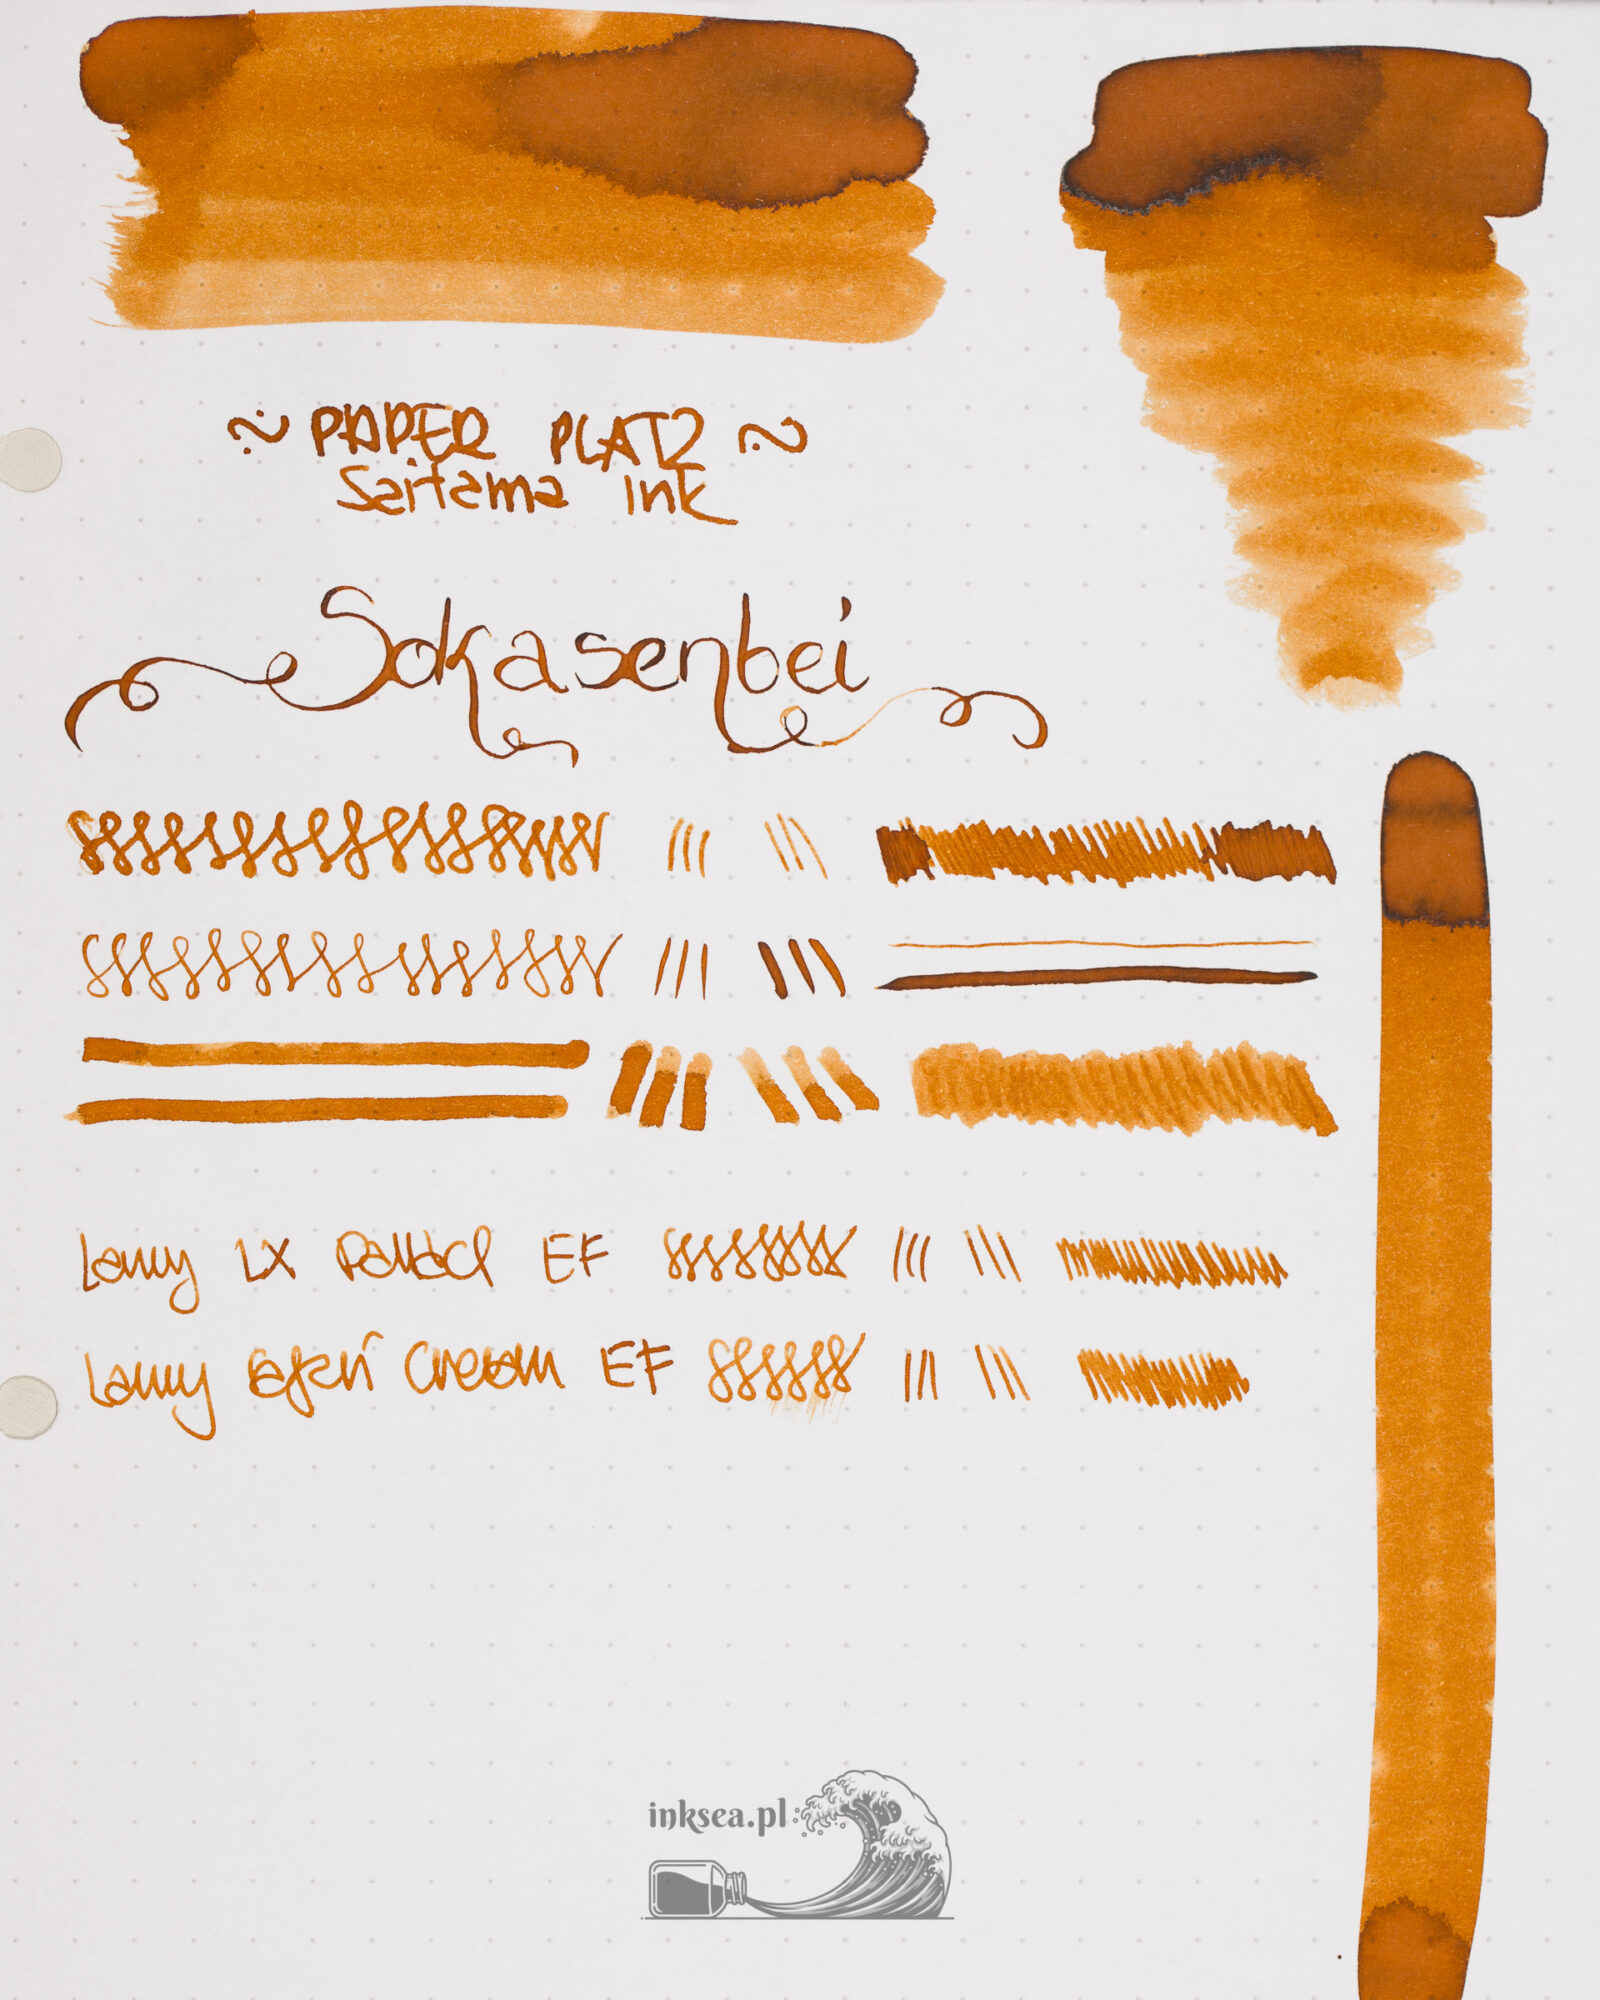 ~ PAPER PLATZ ~
Saitama ink
Sokasenbei
Lamy LX Pallad EF
Lamy Safari Cream EF
inksea.pl